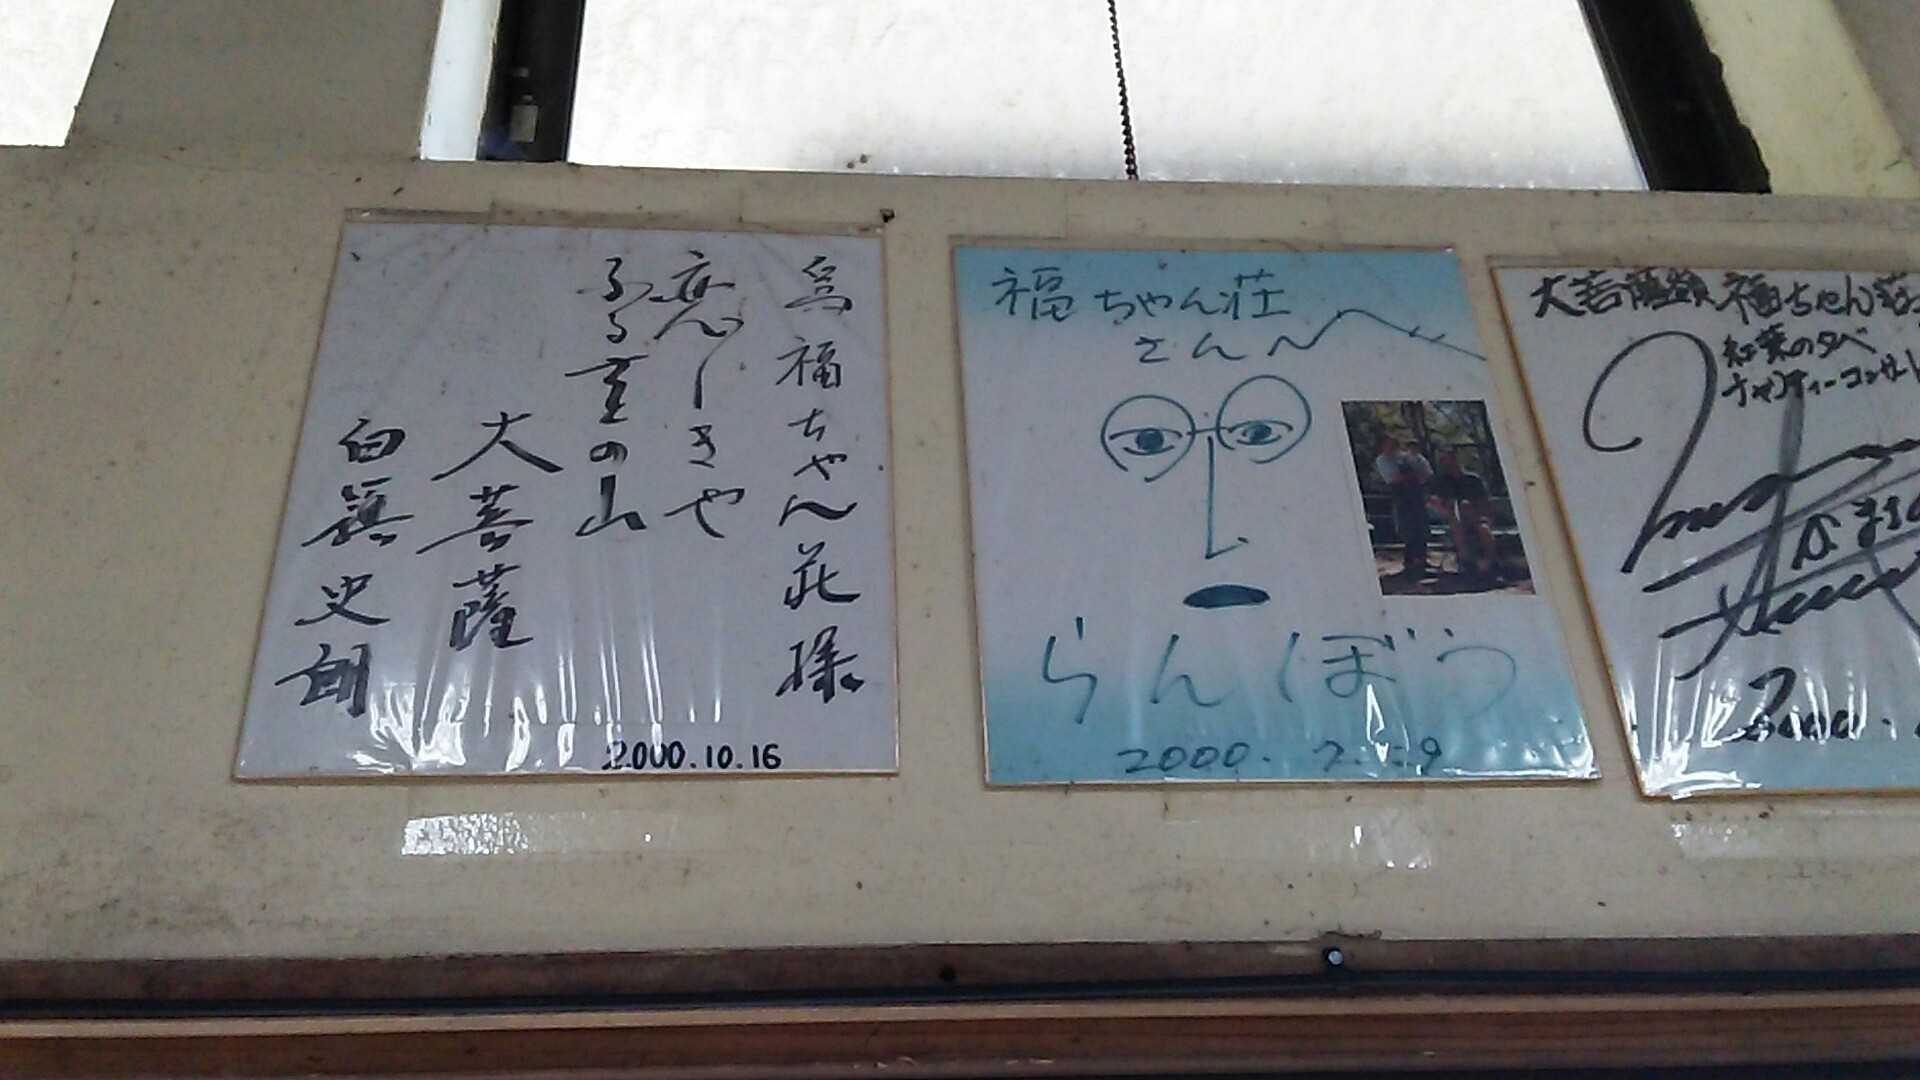 為福ちゃん荘様
恋しきや
ふる里の山
大菩薩
白籏史朗
2000.10.16
福ちゃん荘
さんへ
らんぼう
2000.
大菩薩嶺福ちゃん荘
紅葉の夕べ
チャリティーコンサート
2000.